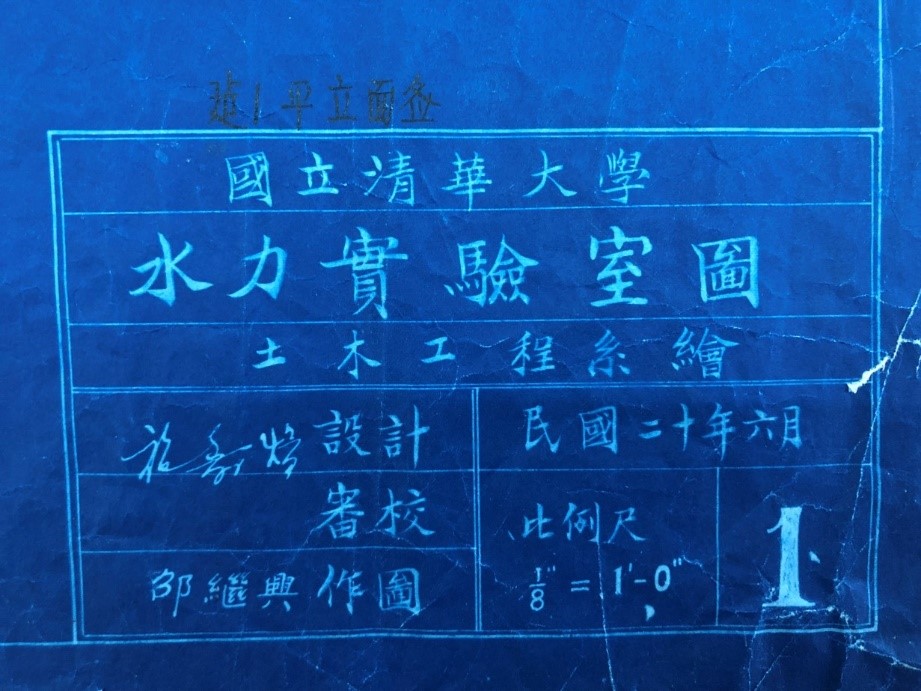 1 平立面
國立清華大學
水力實驗室圖
土木工程系繪
施嘉煬 設計
審校
邵繼興 作圖
民國二十年六月
比例尺
1/8" = 1'-0"
1